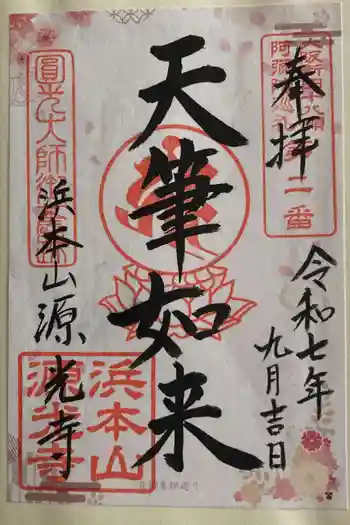 奉拝
令和七年
九月吉日
天筆如来
浜本山源光寺
圓光大師御霊跡
浜本山
源光寺